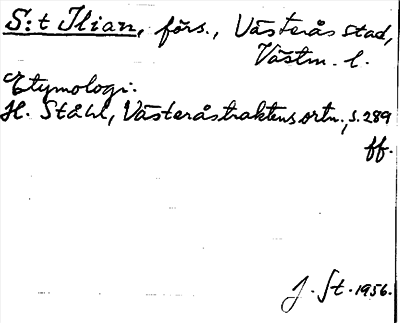 S:t Ilian, förs., Västerås stad,
Västm. l.
Etymologi.
H. Ståhl, Västeråstraktens ortn., s. 289
ff.
J. St. 1956.